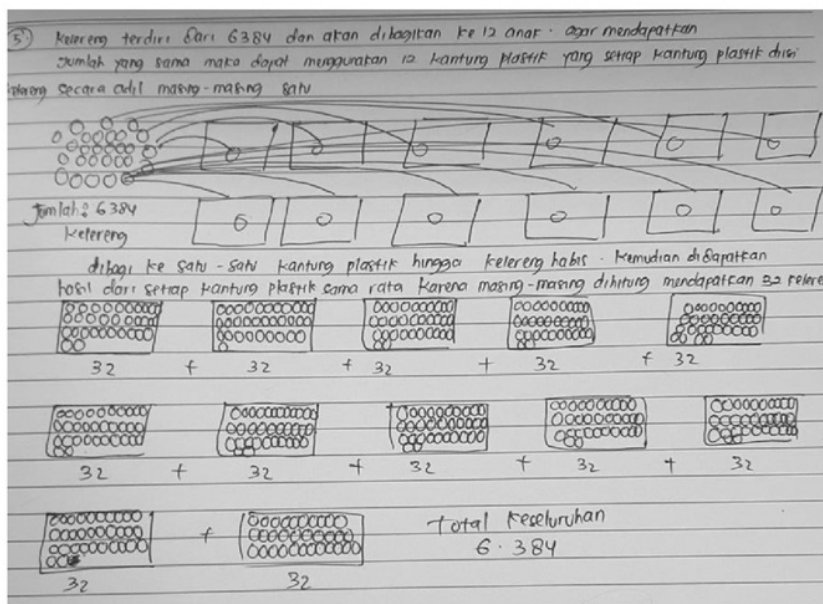 5) Kelereng terdiri dari 6384 dan akan dibagikan ke 12 anak. agar mendapatkan
Jumlah yang sama maka dapat menggunakan 12 kantung plastik yang setiap kantung plastik diisi
secara adil masing-masing satu
Jumlah: 6384
Kelereng
dibagi ke satu-satu kantung plastik hingga kelereng habis. Kemudian didapatkan
hasil dari setiap kantung plastik sama rata karena masing-masing dihitung mendapatkan 32
32 + 32 + 32 + 32 + 32
32 + 32 + 32 + 32 + 32
+ Total Keseluruhan
6.384
32 32